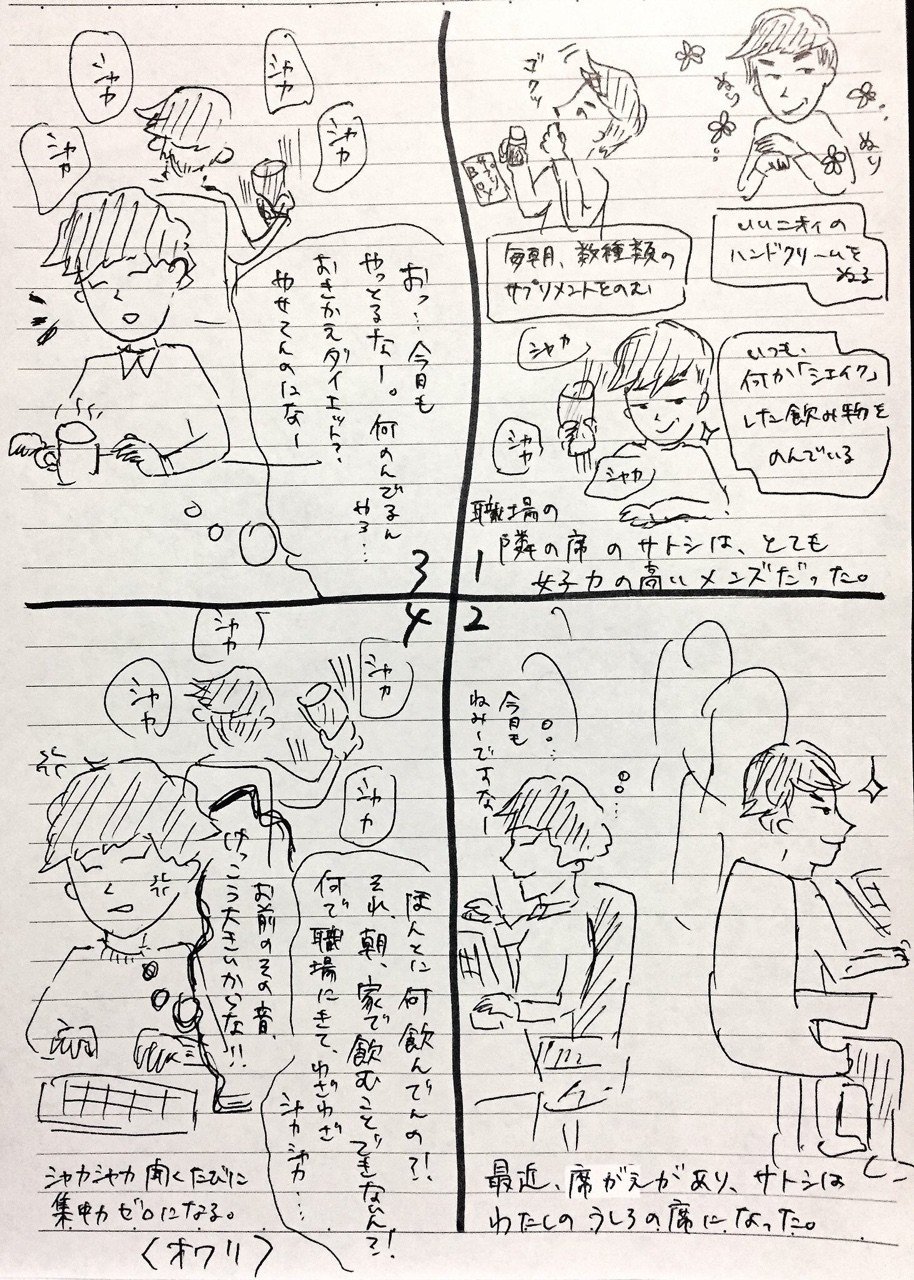 ぬり
ぬり
いいニオイの
ハンドクリームを
ぬる
ゴクッ
サプリ
毎朝、数種類の
サプリメントをのむ
いつも、
何か「シェイク」
した飲み物を
のんでいる
シャカ
シャカ
シャカ
職場の
隣の席のサトシは、とても
女子力の高いメンズだった。
1
2
今日も
ねみーですなー
最近、席がえがあり、サトシは
わたしのうしろの席になった。
3
シャカ
シャカ
シャカ
シャカ
おっ…今日も
やっとるなー。何のんでるん
やろ…
おきかえダイエット?
やせてんのになー
4
シャカ
シャカ
シャカ
シャカ
ほんとに何飲んでんの?!
それ、朝、家で飲むことできないん?!
何で職場にきて、わざわざ
シャカシャカ…
お前のその音、
けっこう大きいからな!!
シャカシャカ聞くたびに
集中力ゼロになる。
(オワリ)